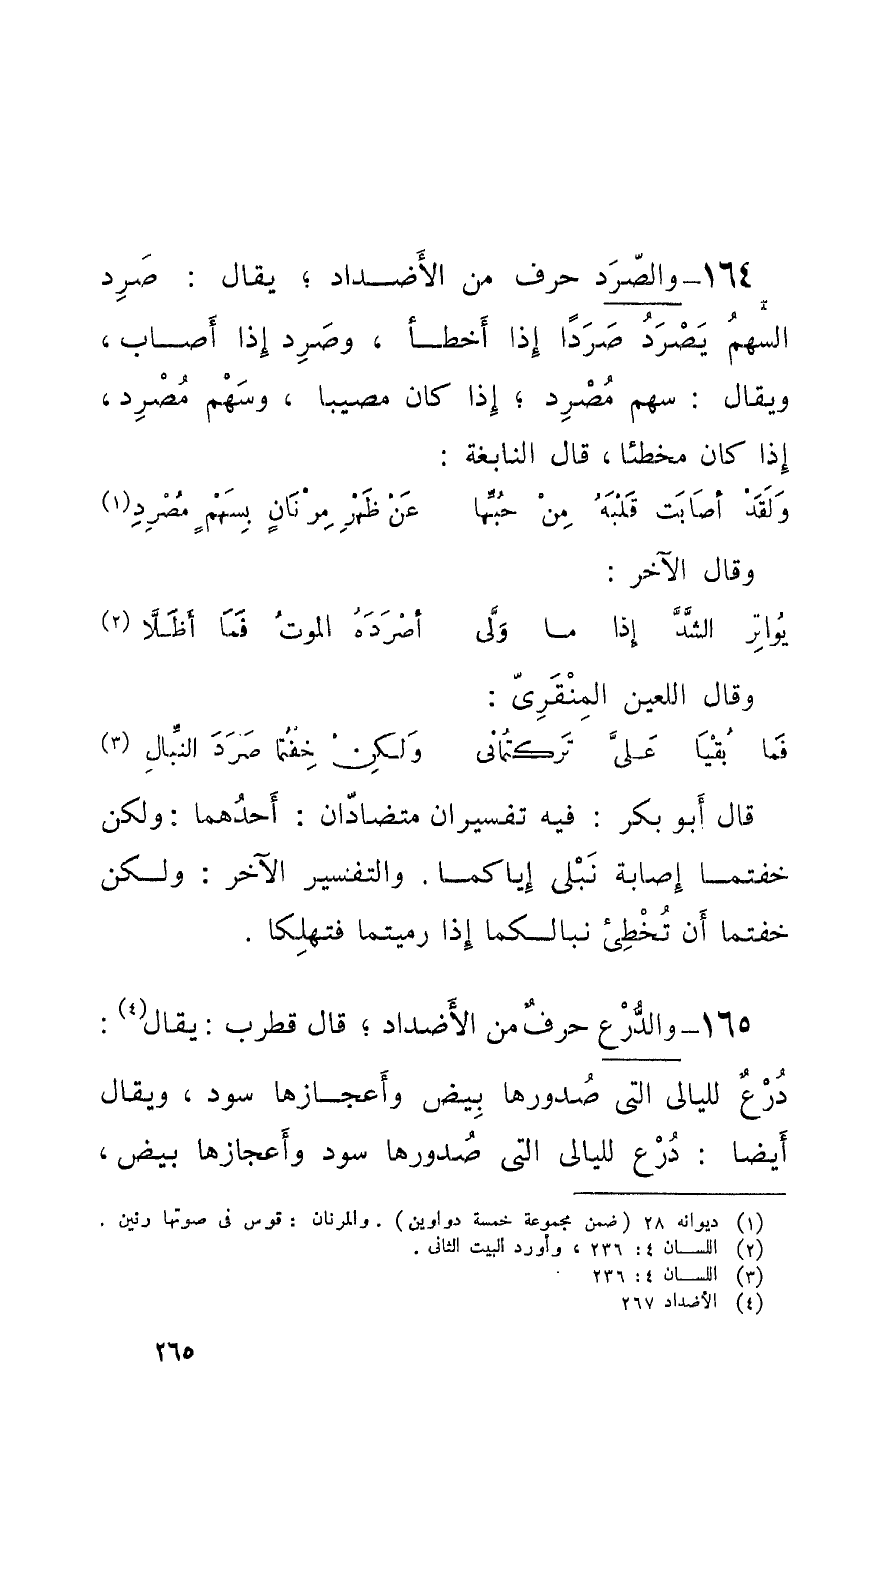 ١٦٤-والصّرَد حرف من الأَضداد ؛ يقال : صَرِد
السَّهمُ يَصْرَدُ صَرَدًا إذا أَخطأ ، وصَرِد إذا أَصاب ،
ويقال : سهم مُصْرِد ؛ إذا كان مصيبا ، وسَهْم مُصْرِد ،
إذا كان مخطئا ، قال النابغة :
وَلَقَدْ أصابَت قَلْبَهُ مِنْ حُبِّها عَنْ ظَهْرِ مِرْنَانٍ بِسَهْمٍ مُصْرِدِ(١)
وقال الآخر :
يُواتِر الشَّدَّ إذا ما وَلَّى أصْرَدَهُ الموتُ فَمَا أَظَلَّا (٢)
وقال اللعين المِنْقَرِىّ :
فَما بُقْيَا عَلىَّ تَرَكتُمانى وَلكِنْ خِفْتُما صَرَدَ النِّبالِ (٣)
قال أَبو بكر : فيه تفسيران متضادّان : أَحدُهما : ولكن
خفتما إصابة نَبْلى إياكما . والتفسير الآخر : ولكن
خفتما أَن تُخْطِئ نبالكما إذا رميتما فتهلِكا .
١٦٥-والدُّرْع حرفٌ من الأَضداد ؛ قال قطرب : يقال(٤) :
دُرْعٌ لليالى التى صُدورها بِيض وأَعجازها سود ، ويقال
أَيضا : دُرْع لليالى التى صُدورها سود وأَعجازها بيض ،
(١) ديوانه ٢٨ (ضمن مجموعة خمسة دواوين) . والمرنان : قوس فى صوتها رنين .
(٢) اللسان ٤ : ٢٣٦ ، وأورد البيت الثانى .
(٣) اللسان ٤ : ٢٣٦
(٤) الأضداد ٢٦٧
٢٦٥